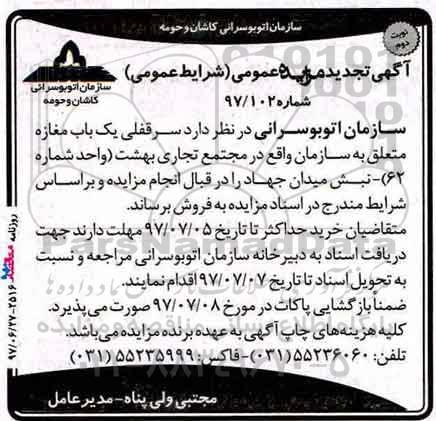 سازمان اتوبوسرانی کاشان و حومه
نوبت دوم
آگهی تجدید مزایده عمومی (شرایط عمومی)
شماره ۹۷/۱۰۲
سازمان اتوبوسرانی
کاشان و حومه
سازمان اتوبوسرانی در نظر دارد سرقفلی یک باب مغازه
متعلق به سازمان واقع در مجتمع تجاری بهشت (واحد شماره
۶۲)- نبش میدان جهاد را در قبال انجام مزایده و براساس
شرایط مندرج در اسناد مزایده به فروش برساند.
متقاضیان خرید حداکثر تا تاریخ ۹۷/۰۷/۰۵ مهلت دارند جهت
دریافت اسناد به دبیرخانه سازمان اتوبوسرانی مراجعه و نسبت
به تحویل اسناد تا تاریخ ۹۷/۰۷/۰۷ اقدام نمایند.
ضمناً بازگشایی پاکات در مورخ ۹۷/۰۷/۰۸ صورت می‌پذیرد.
کلیه هزینه‌های چاپ آگهی به عهده برنده مزایده می‌باشد.
تلفن: ۵۵۲۳۶۰۶۰ (۰۳۱)- فاکس: ۵۵۲۳۵۹۹۹ (۰۳۱)
مجتبی ولی پناه - مدیرعامل
روزنامه
۹۷/۰۶/۲۷-۲۵۱۶
ParsNamadData